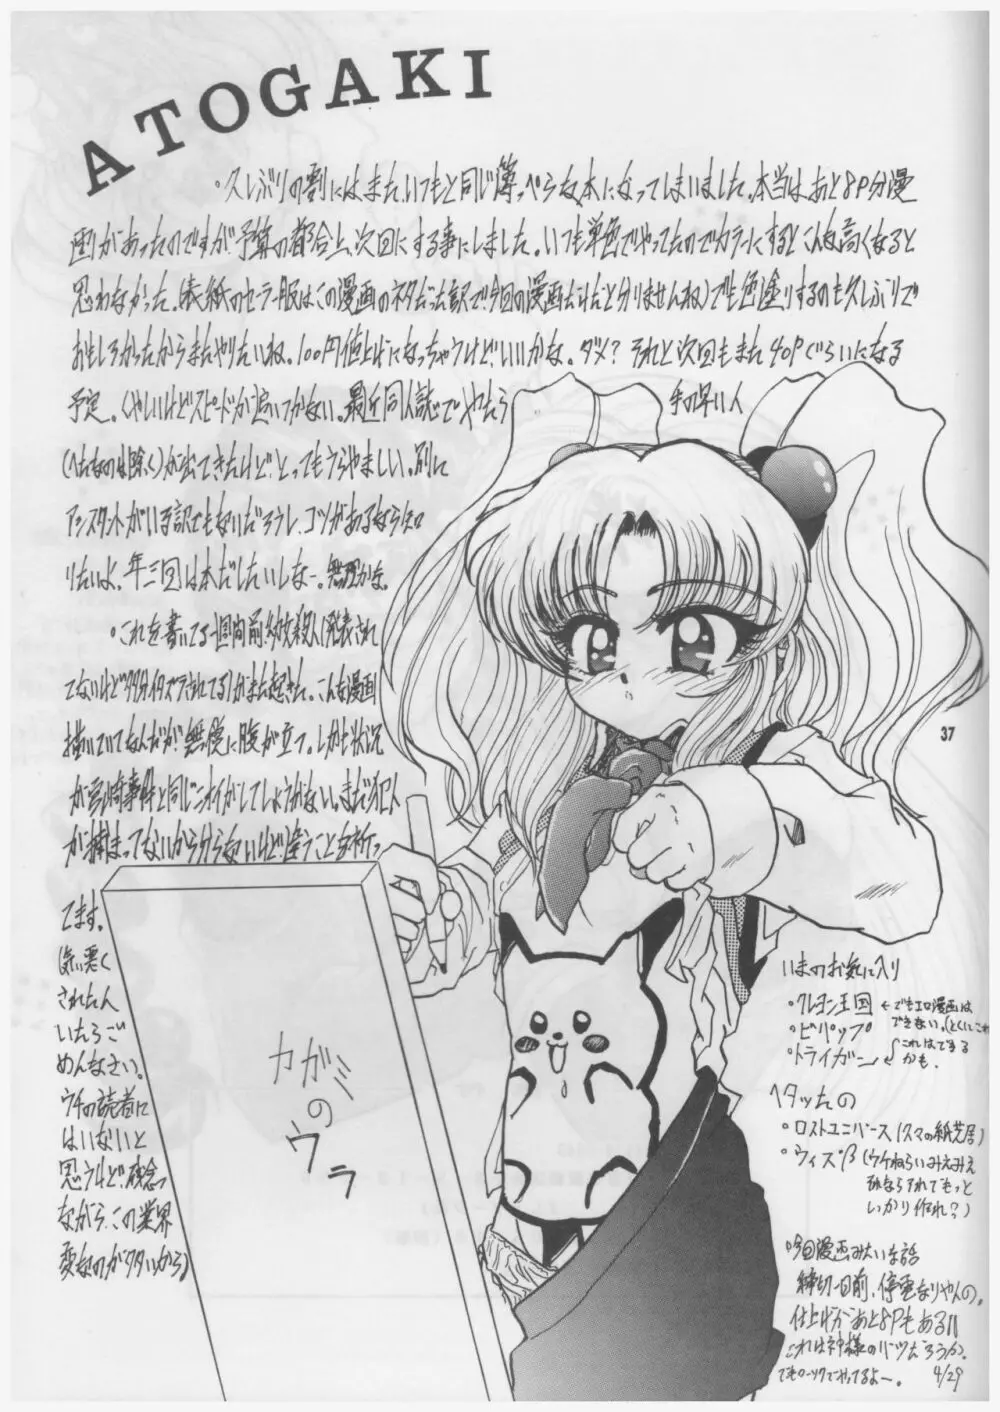 ATOGAKI
・久しぶりの割にはまたいつもと同じ薄っぺらな本になってしまいました。本当はあと8P分漫
画があったのですが予算の都合上、次回にする事にしました。いつも単色でやってたのでカラーにするとこんな高くなると
思わなかった。(表紙のセーラー服はこの漫画のネタだった訳で今回の漫画だけだと分りませんね)でも色塗りするのも久しぶりで
おもしろかったからまたやりたいね。100円値上げになっちゃうけどいいかな。ダメ?それと次回もまた40Pぐらいになる
予定。くやしいけどスピードが追いつかない。最近同人誌でやたら手の早い人
(へたなのは除く)が出てきたけどとってもうらやましい。別に
アシスタントがいる訳でもないだろうし、コツがあるなら知
りたいよ。年三回は本だしたいしなー。無理かな。
・これを書いてる一週間前幼女殺人(発表され
てないけど多分イタズラされてる)がまた起きた。こんな漫画
描いていてなんだが無性に腹が立つ。しかも状況
が宮崎事件と同じニオイがしてしょうがない。まだ犯人
が捕まってないから分らないけど違うことを祈っ
てます。
(気悪く
された人
いたらご
めんなさい。
ウチの読者に
はいないと
思うけど残念
ながらこの業界
変なのが多いから)
カガミ
の
ウラ
37
いまのお気に入り
・クレヨン王国 ←でもエロ漫画は
できない。(とくにこれ
・ビパップ
これはできる
かも.
・トライガン
ヘタッたの
・ロストユニバース(スマの紙芝居)
・ウィズβ(ウケねらいみえみえ
それならそれでもっと
しっかり作れ?)
・今回漫画みたいな話
締切一日前、停電なりやんの。
仕上げがあと8Pもある!!
これは神様のバツだろうか。
でもローソクでやってるよー。 4/29